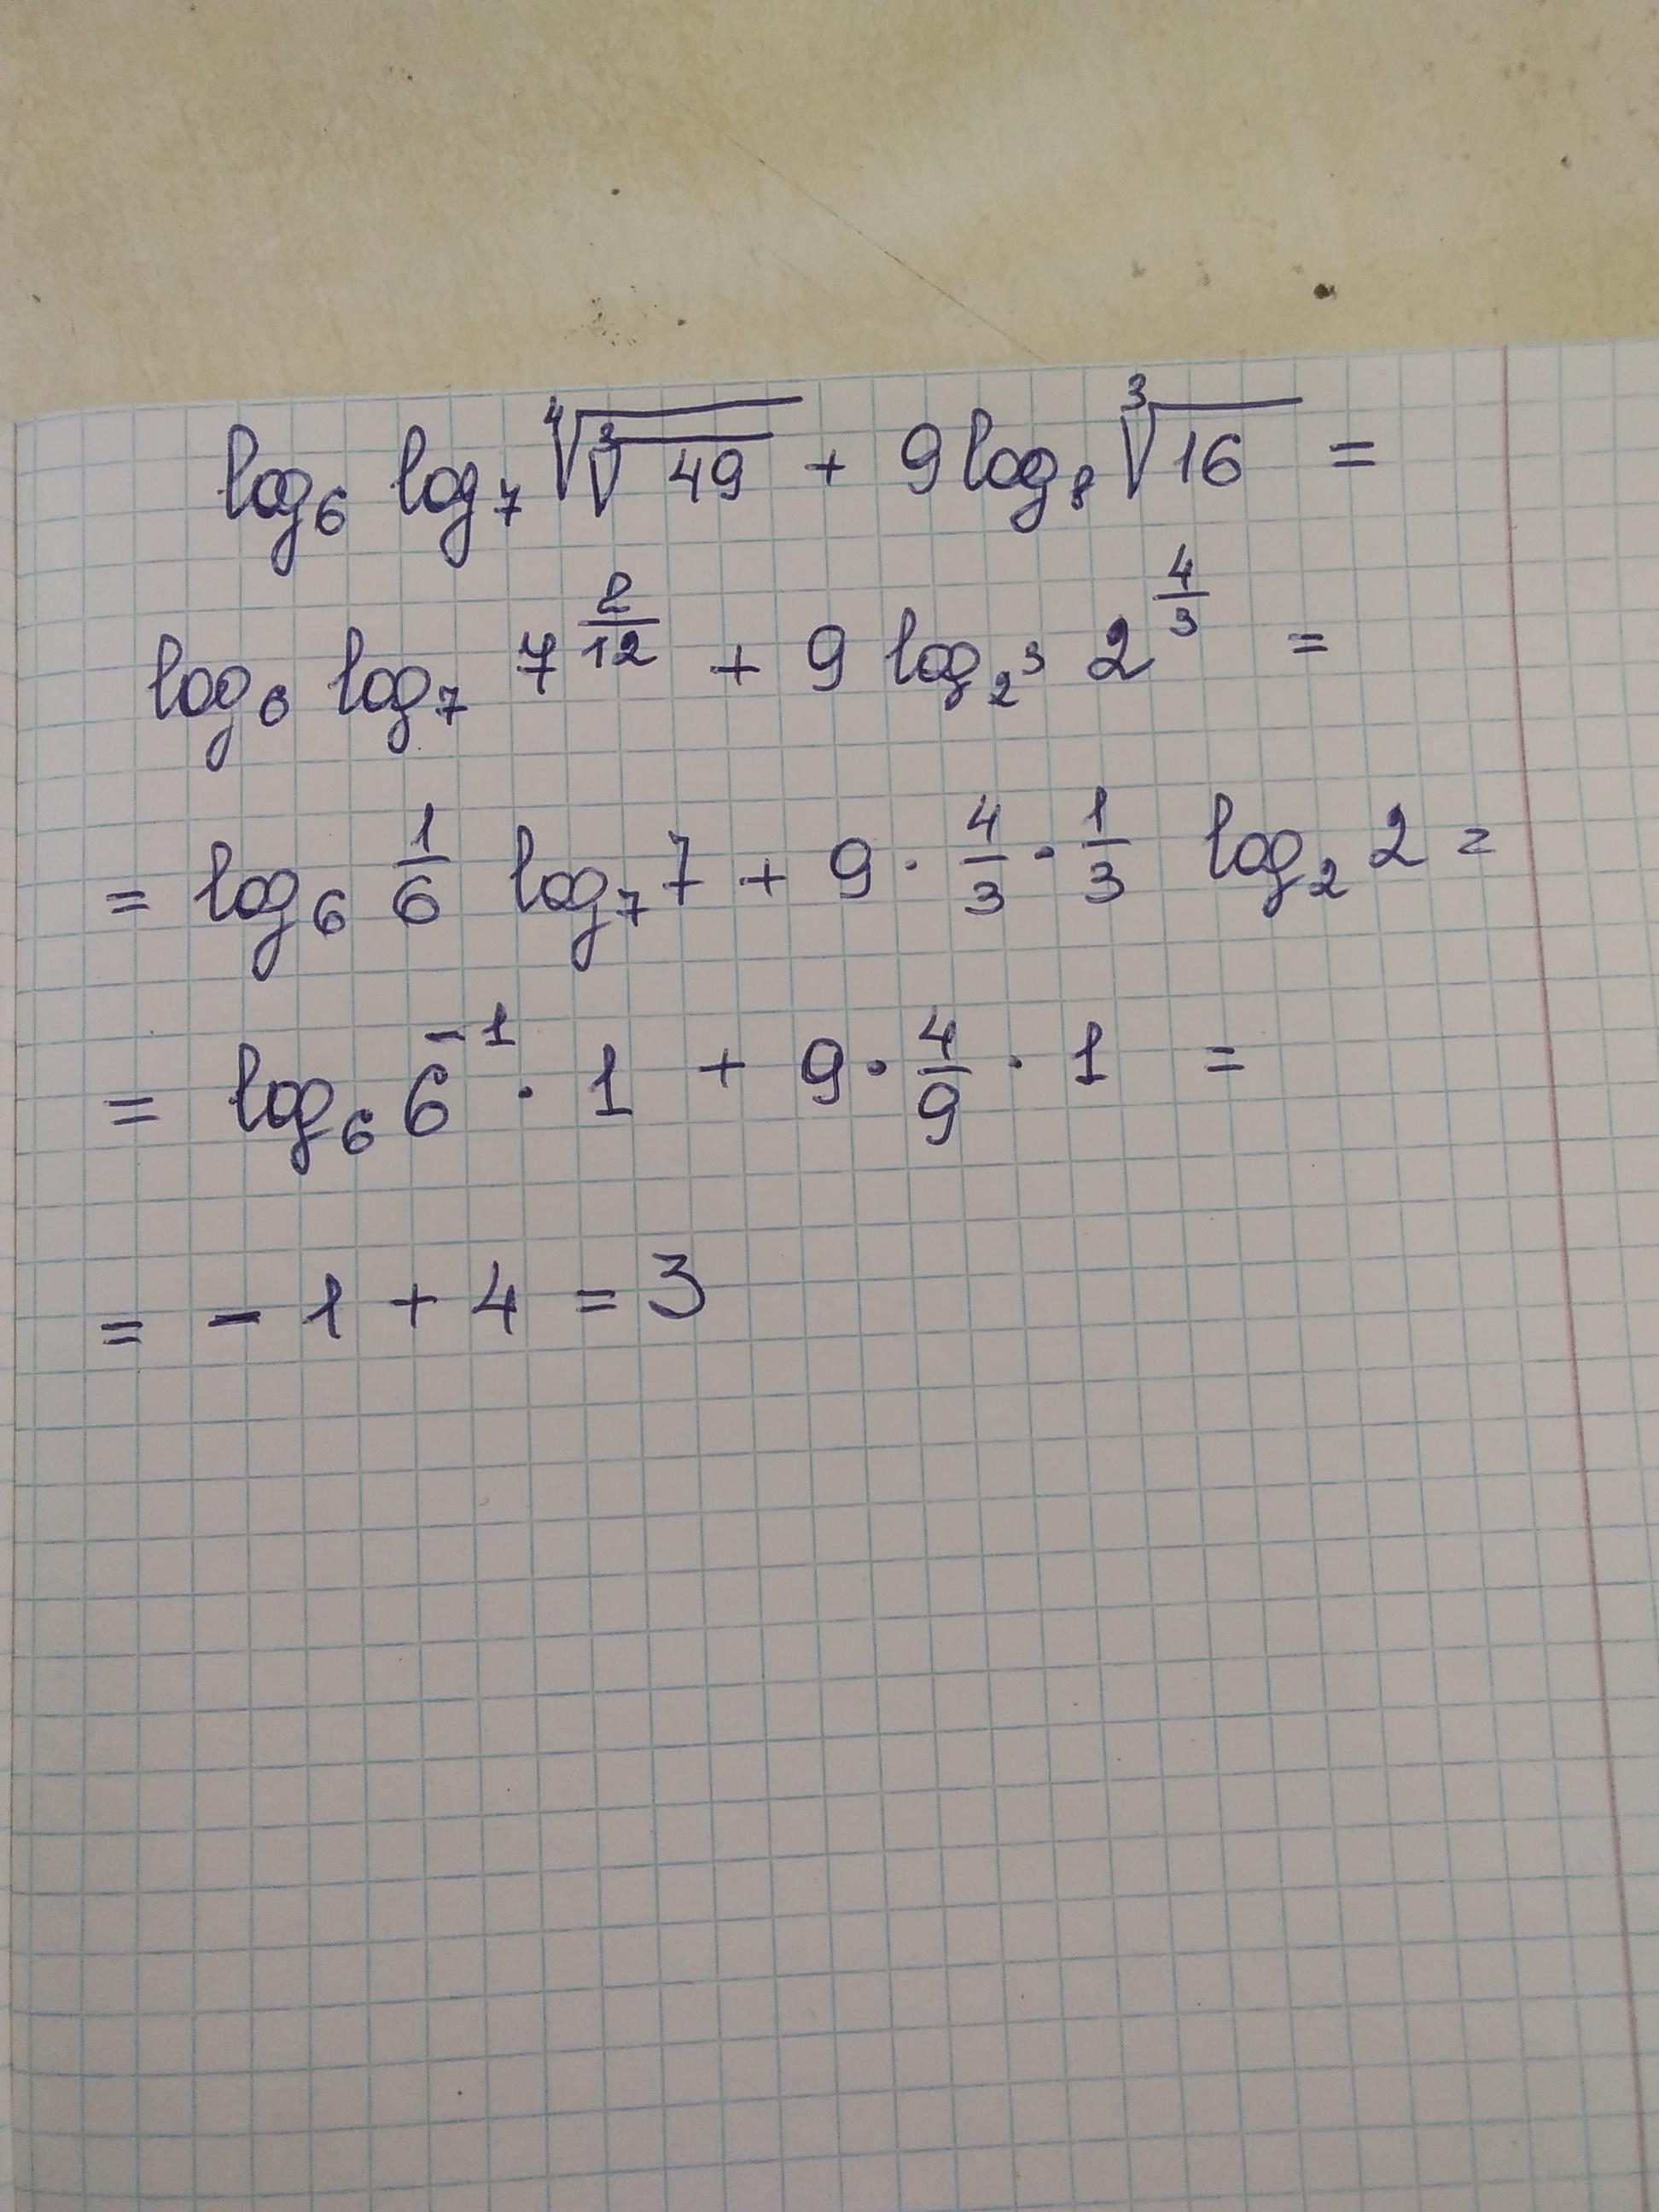 log₆ log₇ ⁴√(³√49) + 9 log₈ ³√16 =
log₆ log₇ 7^(2/12) + 9 log_(2³) 2^(4/3) =
= log₆ 1/6 log₇ 7 + 9 · 4/3 · 1/3 log₂ 2 =
= log₆ 6⁻¹ · 1 + 9 · 4/9 · 1 =
= - 1 + 4 = 3